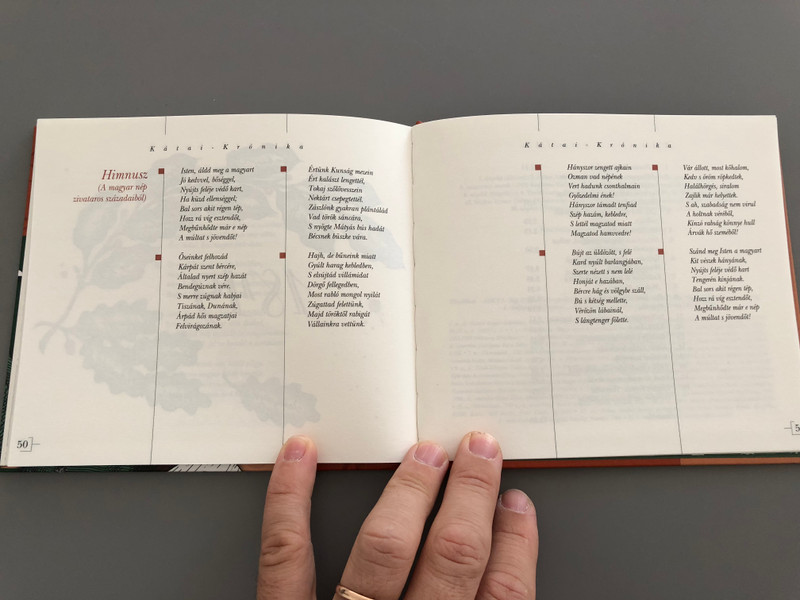 Kátai-Krónika
Himnusz
(A magyar nép
zivataros századaiból)
Isten, áldd meg a magyart
Jó kedvvel, bőséggel,
Nyújts feléje védő kart,
Ha küzd ellenséggel;
Bal sors akit régen tép,
Hozz rá víg esztendőt,
Megbűnhődte már e nép
A múltat s jövendőt!
Őseinket felhozád
Kárpát szent bércére,
Általad nyert szép hazát
Bendegúznak vére.
S merre zúgnak habjai
Tiszának, Dunának,
Árpád hős magzatjai
Felvirágozának.
Értünk Kunság mezein
Ért kalászt lengettél,
Tokaj szőlővesszein
Nektárt csepegtettél.
Zászlónk gyakran plántálád
Vad török sáncára,
S nyögte Mátyás bús hadát
Bécsnek büszke vára.
Hajh, de bűneink miatt
Gyúlt harag kebledben,
S elsújtád villámidat
Dörgő fellegedben,
Most rabló mongol nyilát
Zúgattad felettünk,
Majd töröktől rabigát
Vállainkra vettünk.
50
Kátai-Krónika
Hányszor zengett ajkain
Ozman vad népének
Vert hadunk csonthalmain
Győzedelmi ének!
Hányszor támadt tenfiad
Szép hazám, kebledre,
S lettél magzatod miatt
Magzatod hamvvedre!
Bújt az üldözött, s felé
Kard nyúlt barlangjában,
Szerte nézett s nem lelé
Honját e hazában,
Bércre hág és völgybe száll,
Bú s kétség mellette,
Vérözön lábainál,
S lángtenger fölette.
Vár állott, most kőhalom,
Kedv s öröm röpkedtek,
Halálhörgés, siralom
Zajlik már helyettek.
S ah, szabadság nem virul
A holtnak véréből,
Kínzó rabság könnye hull
Árvák hő szeméből!
Szánd meg Isten a magyart
Kit vészek hányának,
Nyújts feléje védő kart
Tengerén kínjának.
Bal sors akit régen tép,
Hozz rá víg esztendőt,
Megbűnhődte már e nép
A múltat s jövendőt!